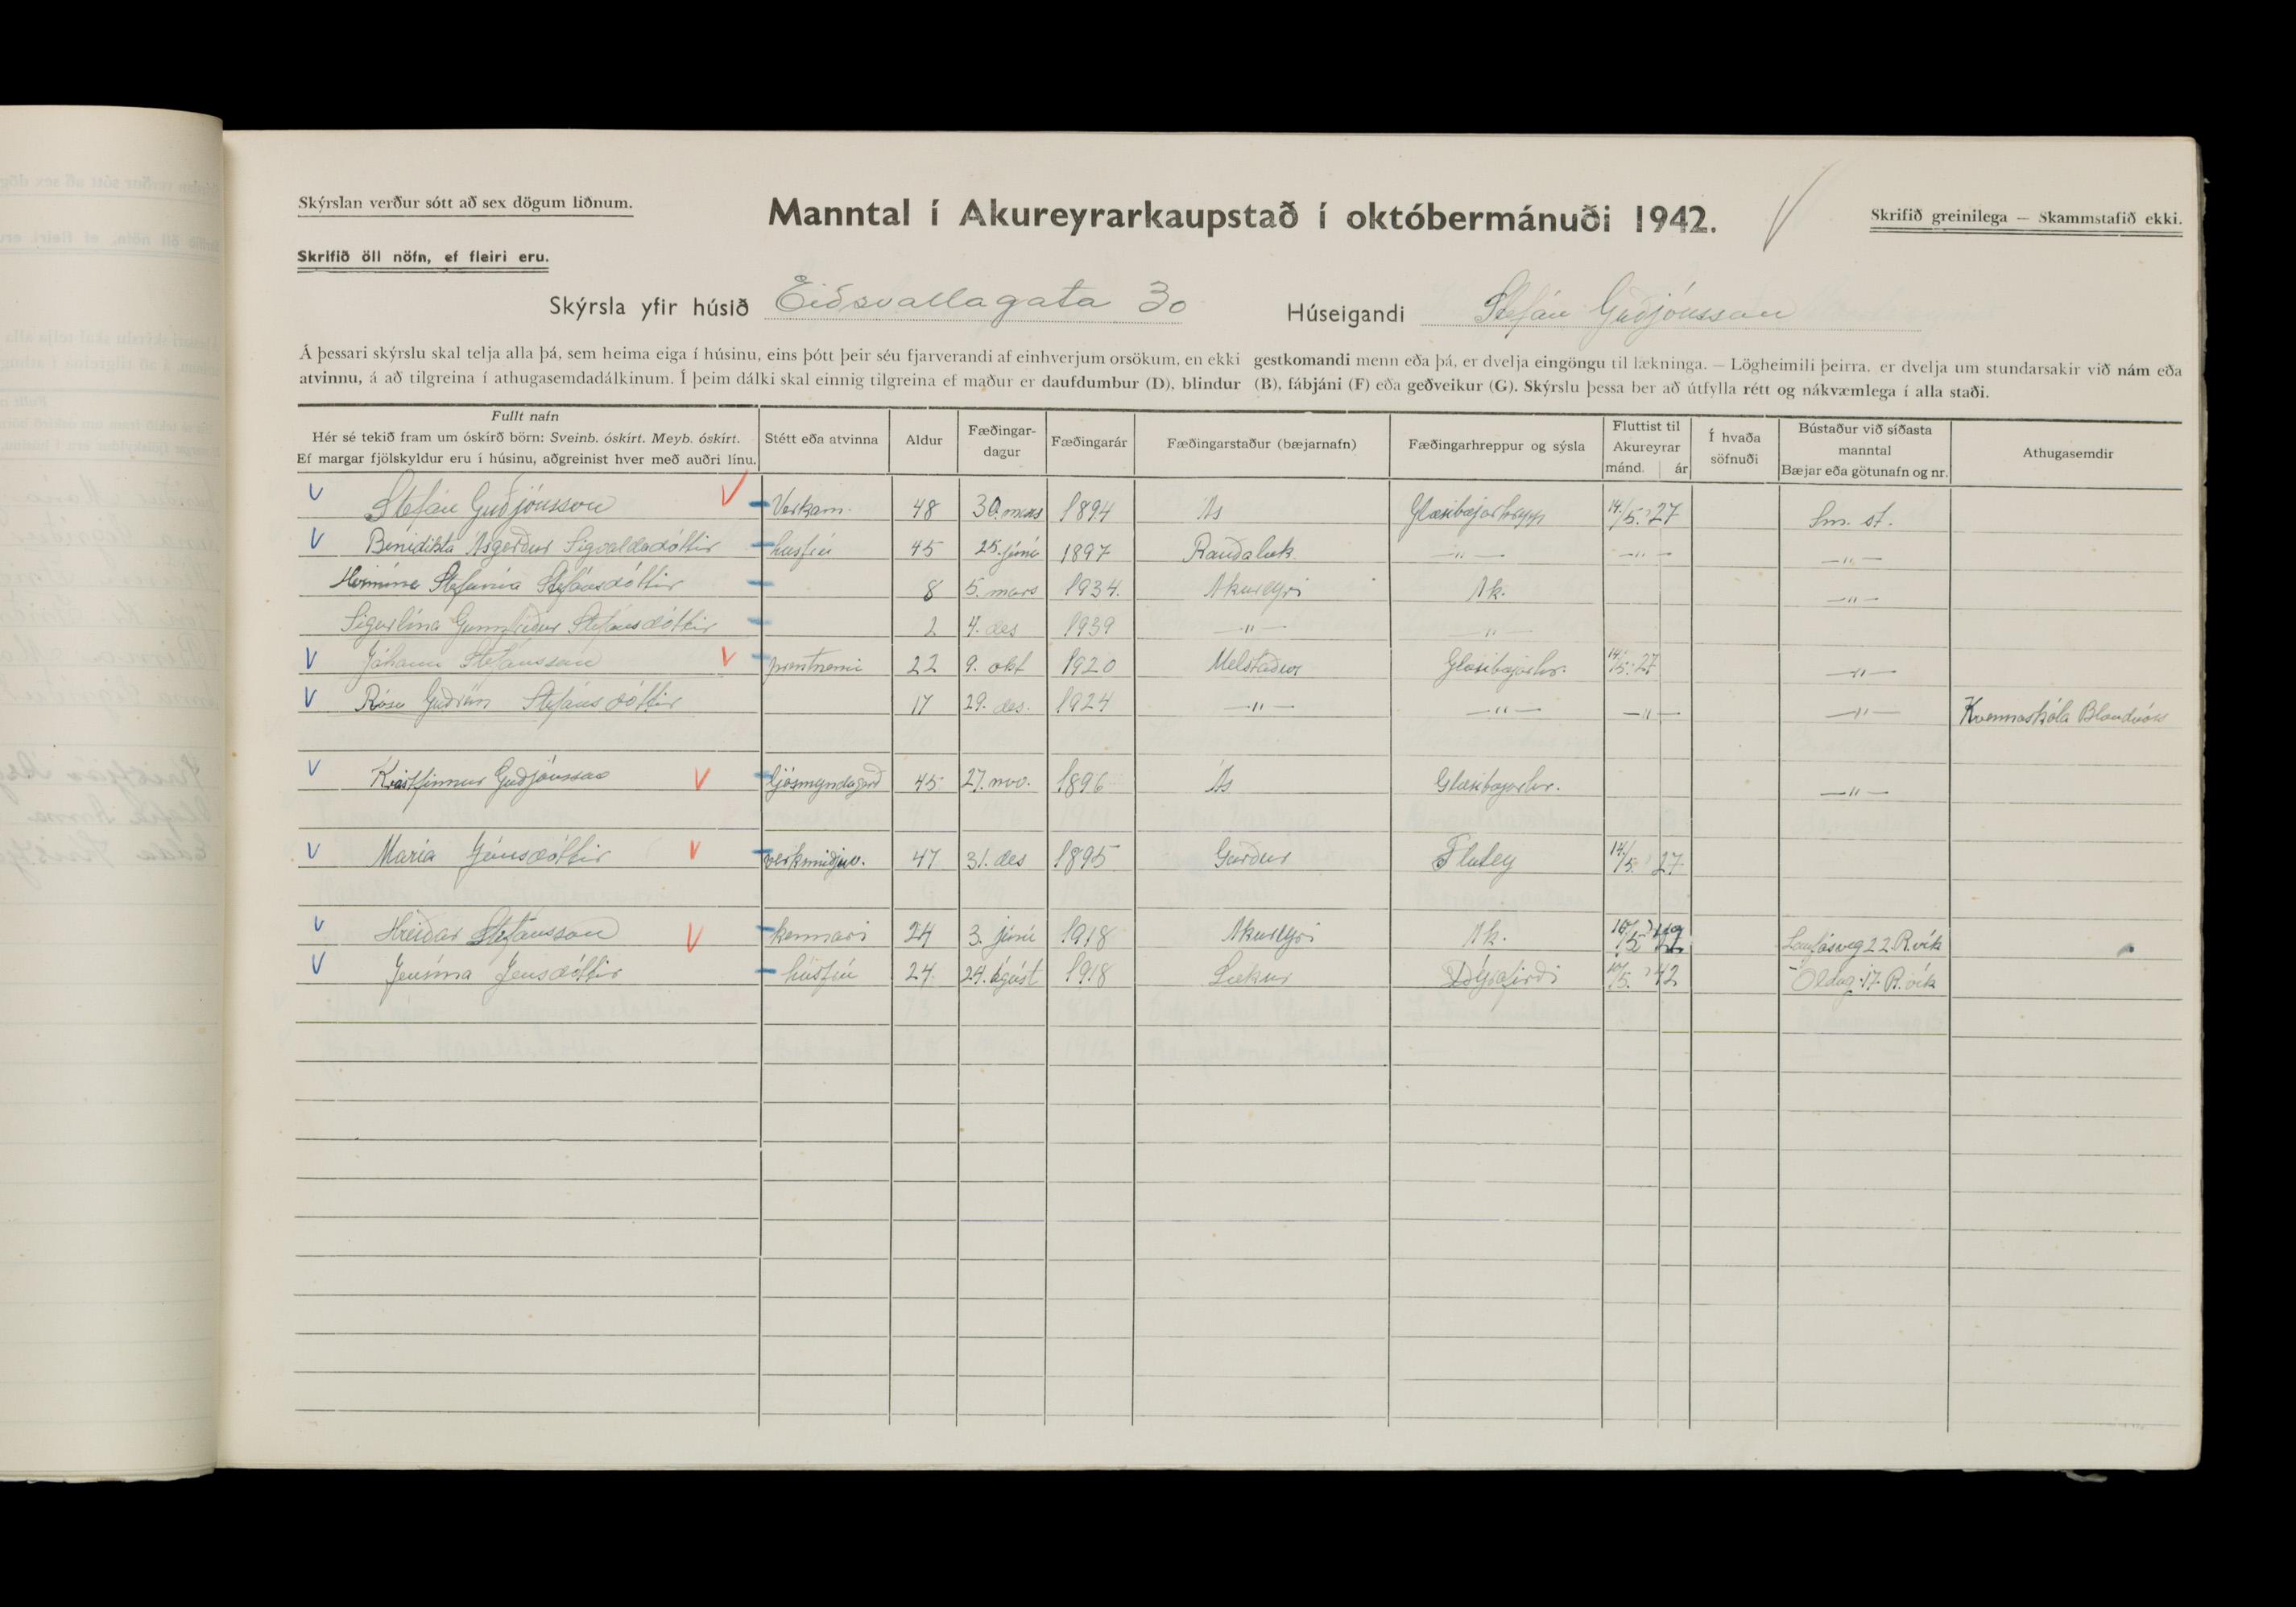 Skýrslan verður sótt að sex dögum liðnum.
Manntal í Akureyrarkaupstað í októbermánuði 1942.
Skrifið greinilega — Skammstafið ekki.
Skrifið öll nöfn, ef fleiri eru.
Skýrsla yfir húsið Eiðsvallagata 30 Húseigandi Stefán Guðjónsson
Á þessari skýrslu skal telja alla þá, sem heima eiga í húsinu, eins þótt þeir séu fjarverandi af einhverjum orsökum, en ekki gestkomandi menn eða þá, er dvelja eingöngu til lækninga. — Lögheimili þeirra, er dvelja um stundarsakir við nám eða
atvinnu, á að tilgreina í athugasemdadálkinum. Í þeim dálki skal einnig tilgreina ef maður er daufdumbur (D), blindur (B), fábjáni (F) eða geðveikur (G). Skýrslu þessa ber að útfylla rétt og nákvæmlega í alla staði.
Fullt nafn
Hér sé tekið fram um óskírð börn: Sveinb. óskírt. Meyb. óskírt.
Ef margar fjölskyldur eru í húsinu, aðgreinist hver með auðri línu.
Stétt eða atvinna
Aldur
Fæðingar-
dagur
Fæðingarár
Fæðingarstaður (bæjarnafn)
Fæðingarhreppur og sýsla
Fluttist til
Akureyrar
mánd. ár
Í hvaða
söfnuði
Bústaður við síðasta
manntal
Bæjar eða götunafn og nr.
Athugasemdir
V Stefán Guðjónsson V Verkam. 48 30. mars 1894 Ás Glæsibæjarhrepp 14/5. 27 Sm. st.
V Benidikta Ásgerður Sigvaldadóttir húsfrú 45 25. júní 1897 Rauðalæk —"— —"— —"—
Hermína Stefanía Stefánsdóttir 8 5. mars 1934. Akureyri Ak. —"—
Sigurlína Gunnfríður Stefánsdóttir 2 4. des 1939 —"— —"—
V Jóhann Stefánsson V prentnemi 22 9. okt 1920 Melstaður Glæsibæjarhr. 14/5. 27 —"—
V Rósa Guðrún Stefánsdóttir 17 29. des. 1924 —"— —"— —"— —"— Kvennaskóla Blönduós
V Kristfinnur Guðjónsson V ljósmyndagerð 45 27. nóv. 1896 Ás Glæsibæjarhr. —"—
V María Jónsdóttir V verksmiðjuv. 47 31. des 1895 Garður Flatey 14/5. 27
V Hreiðar Stefánsson V kennari 24 3. júní 1918 Akureyri Ak. Laufásveg 22 R.vík
V Jenína Jensdóttir húsfrú 24. 24. ágúst 1918 Lækur Dýrafirði 5. 42 Öldug. 17. R.vík